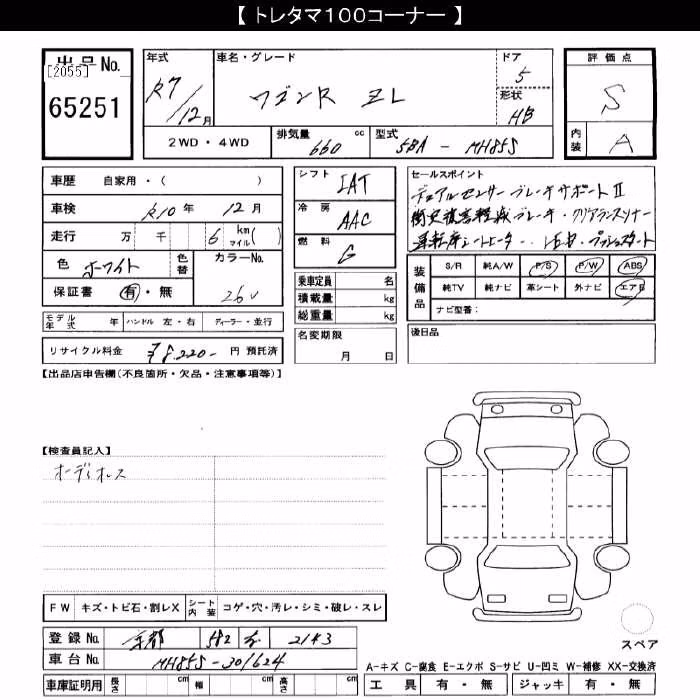 【 トレタマ100コーナー 】
出品No.
[2055]
65251
年式
R7/12月
車名・グレード
ワゴンR ZL
ドア
5
形状
HB
評価点
S
内装
A
2WD・4WD
排気量 660 cc
型式 5BA - MH85S
車歴 自家用・( )
車検 R10年 12月
走行 万 千 6 km マイル( )
色 ホワイト
色替
カラーNo.
26U
保証書 有・無
モデル年式 年 ハンドル 左・右 ディーラー・並行
リサイクル料金 ¥8,220- 円 預託済
シフト IAT
冷房 AAC
燃料 G
乗車定員 名
積載量 kg
総重量 kg
名変期限
月 日
セールスポイント
デュアルセンサーブレーキサポートⅡ
衝突被害軽減ブレーキ・クリアランスソナー
運転席シートヒーター・LED・プッシュスタート
装備品
S/R 純A/W P/S P/W ABS
純TV 純ナビ 革シート 外ナビ エアB
ナビ型番:
後日品
【出品店申告欄(不良箇所・欠品・注意事項等)】
【検査員記入】
オーディオレス
FW キズ・トビ石・割レX シート内装 コゲ・穴・汚レ・シミ・破レ・スレ
登録No. 京都 582 2143
車台No. MH85S-301624
車庫証明用 長さ cm 幅 cm 高さ cm
スペア
A-キズ C-腐食 E-エクボ S-サビ U-凹ミ W-補修 XX-交換済
工具 有・無 ジャッキ 有・無